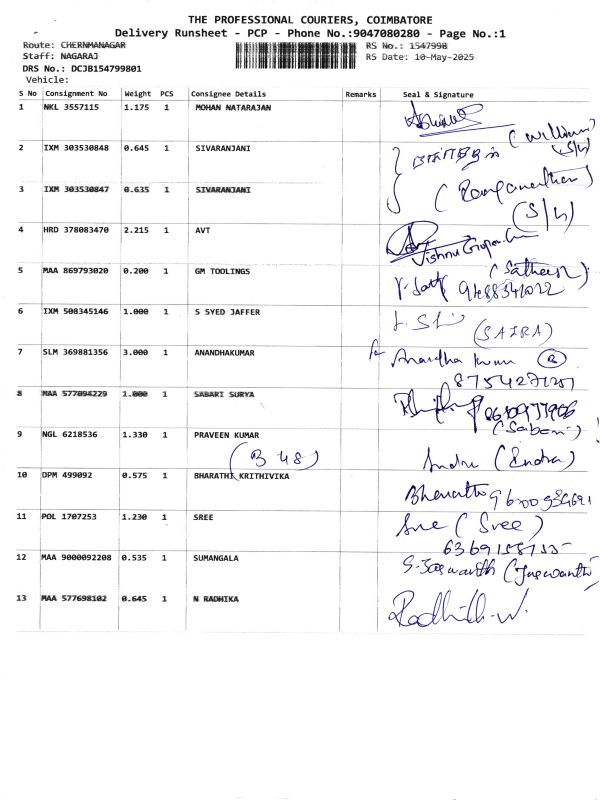 THE PROFESSIONAL COURIERS, COIMBATORE
Delivery Runsheet - PCP - Phone No.:9047080280 - Page No.:1
Route: CHERNMANAGAR RS No.: 1547998
Staff: NAGARAJ RS Date: 10-May-2025
DRS No.: DCJB154799801
Vehicle:
S No Consignment No Weight PCS Consignee Details Remarks Seal & Signature
1 NKL 3557115 1.175 1 MOHAN NATARAJAN
(William)
(S/h)
2 IXM 303530848 0.645 1 SIVARANJANI
3 IXM 303530847 0.635 1 SIVARANJANI
(S/h)
4 HRD 378083470 2.215 1 AVT
5 MAA 869793020 0.200 1 GM TOOLINGS
6 IXM 508345146 1.000 1 S SYED JAFFER
(SAIRA)
7 SLM 369881356 3.000 1 ANANDHAKUMAR Anandha Kumar
8 MAA 577094229 1.000 1 SABARI SURYA
(Sabari)
9 NGL 6218536 1.330 1 PRAVEEN KUMAR
(B 48) Indru (Indra)
10 DPM 499092 0.575 1 BHARATHI KRITHIVIKA
11 POL 1707253 1.230 1 SREE Sree (Sree)
12 MAA 9000092208 0.535 1 SUMANGALA
S. Jaswanth (Jaswanth)
13 MAA 577698102 0.645 1 N RADHIKA
Radhika.N.